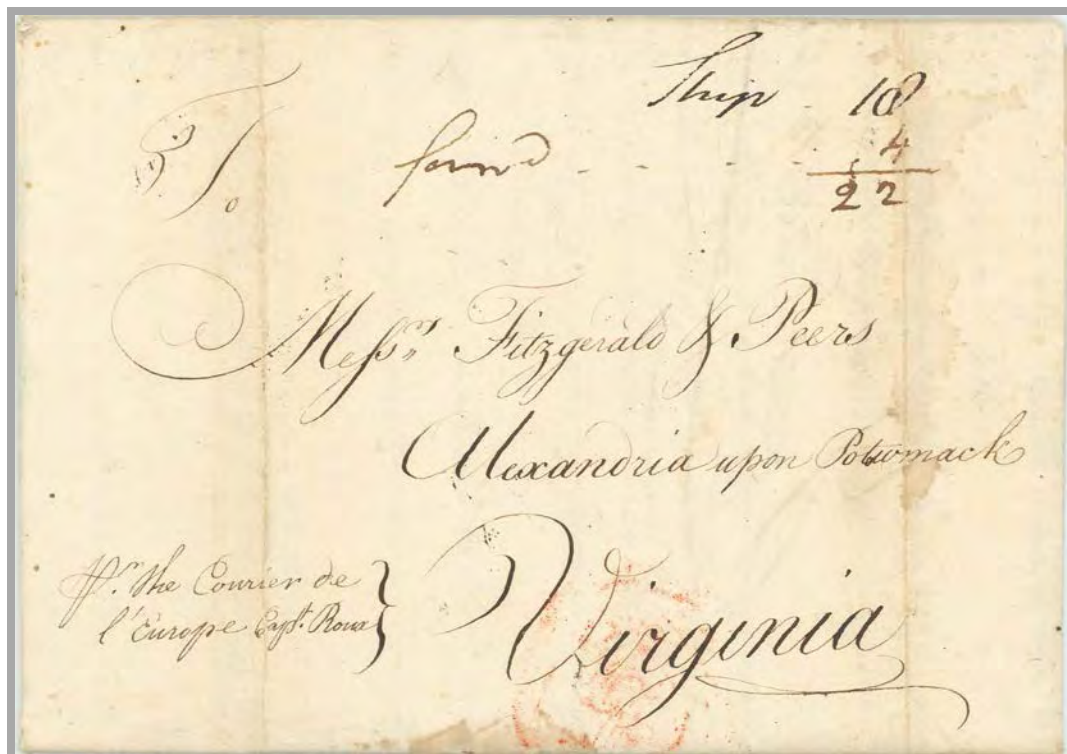 Ship - 18
forw'd - - - - 4
22
To
Mess.rs Fitzgerald & Peers
Alexandria upon Potowmack
Virginia
p.r the Courier de
l'Europe Capt. Roux